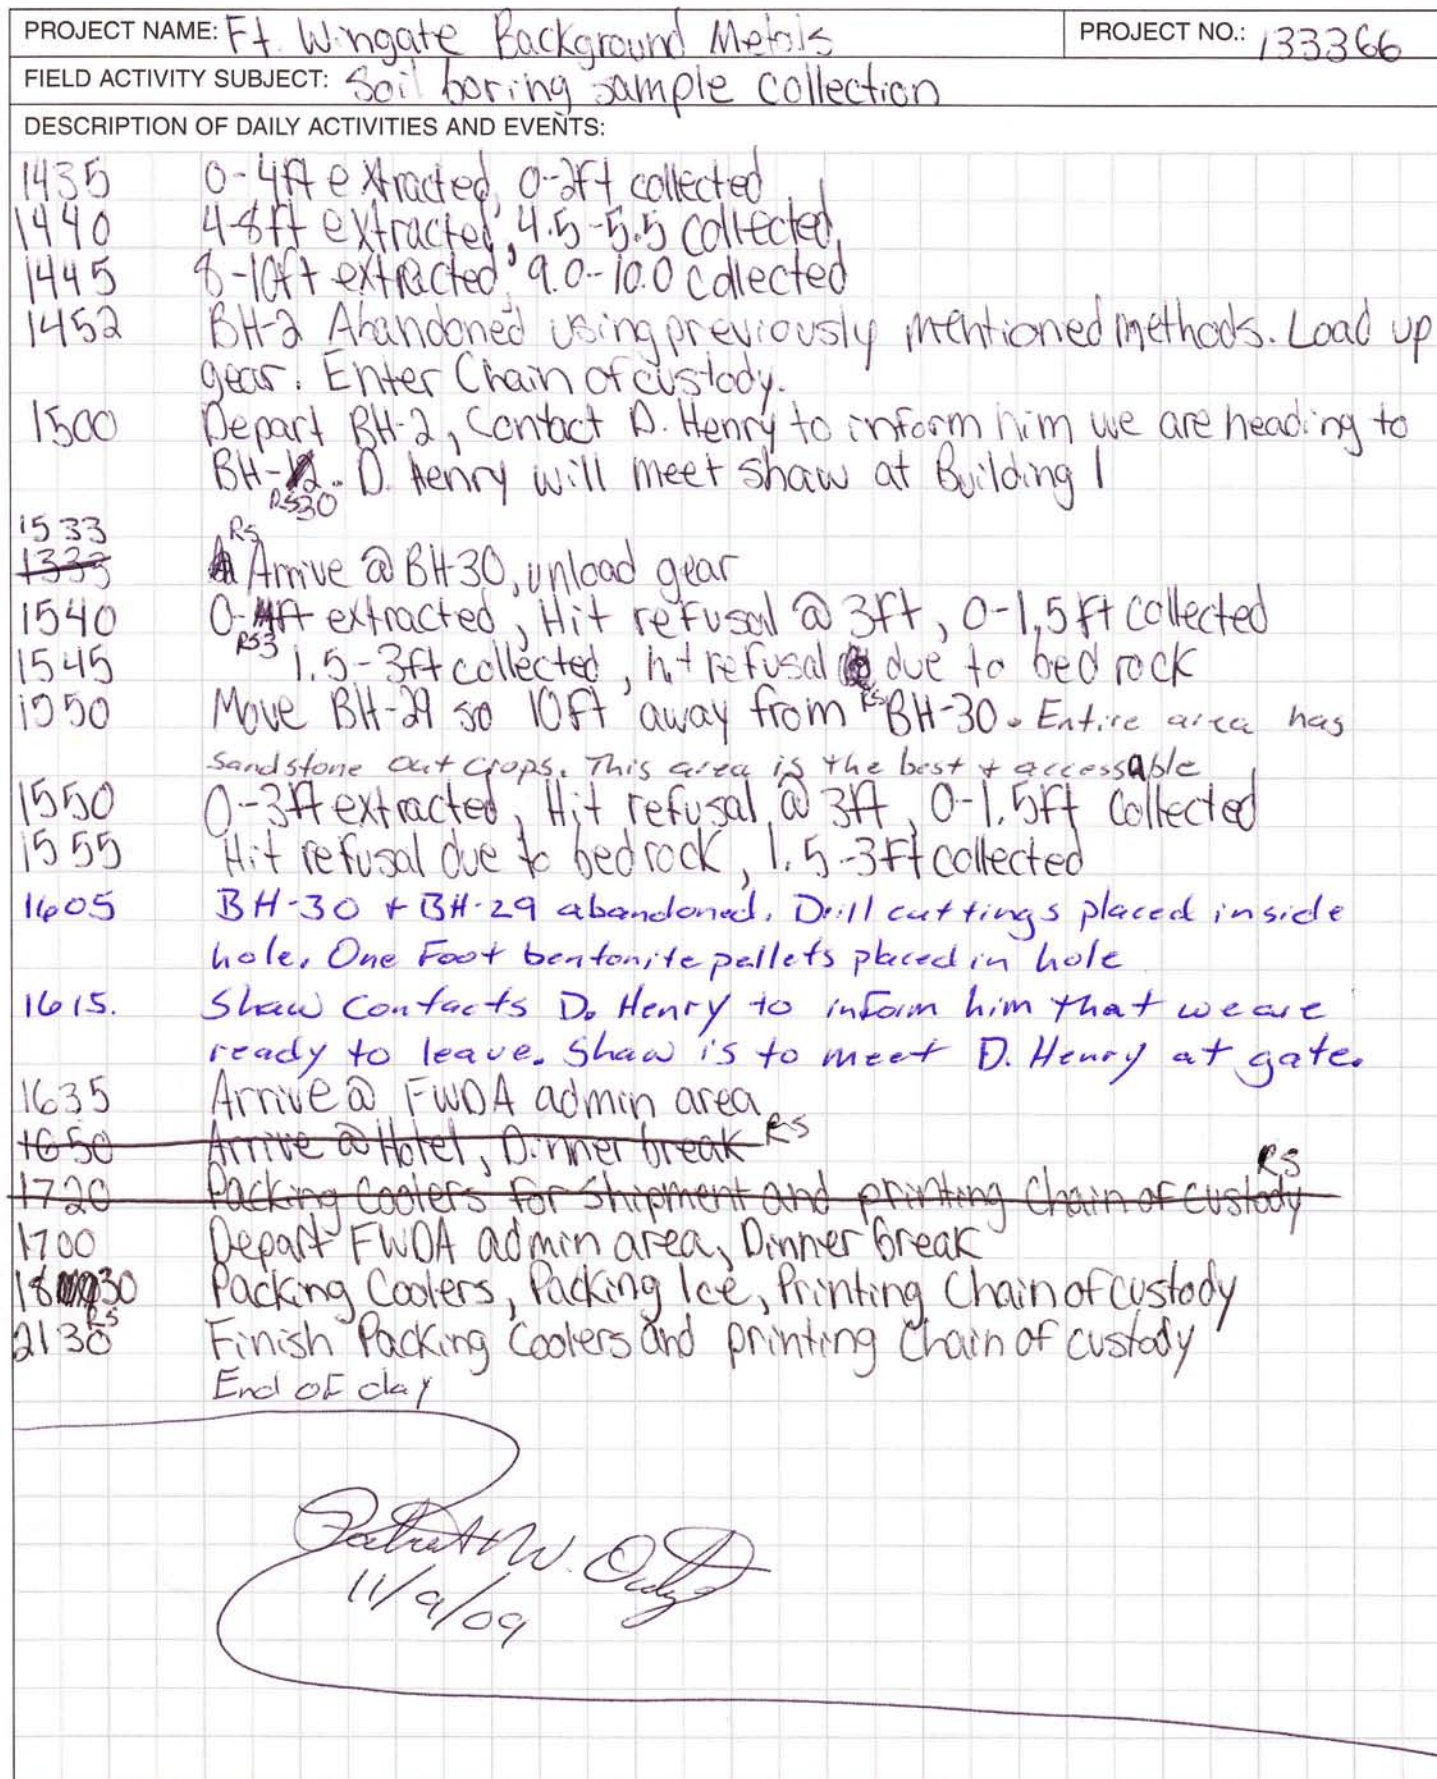 PROJECT NAME: Ft. Wingate Background Metals PROJECT NO.: 133366
FIELD ACTIVITY SUBJECT: Soil boring sample collection
DESCRIPTION OF DAILY ACTIVITIES AND EVENTS:
1435 0-4ft extracted, 0-2ft collected
1440 4-8ft extracted, 4.5-5.5 collected,
1445 8-10ft extracted, 9.0-10.0 collected
1452 BH-2 Abandoned using previously mentioned methods. Load up
gear. Enter Chain of custody.
1500 Depart BH-2, Contact D. Henry to inform him we are heading to
BH-12. D. Henry will meet Shaw at Building 1
RS 30
1533 RS
1333 Arrive @ BH-30, unload gear
1540 0-4ft extracted, Hit refusal @ 3ft, 0-1.5ft collected
RS 3
1545 1.5-3ft collected, hit refusal due to bedrock
RS
1550 Move BH-29 so 10ft away from BH-30. Entire area has
Sandstone out crops. This area is the best + accessable
1550 0-3ft extracted, Hit refusal @ 3ft, 0-1.5ft Collected
1555 Hit refusal due to bedrock, 1.5-3ft collected
1605 BH-30 + BH-29 abandoned. Drill cuttings placed inside
hole. One Foot bentonite pellets placed in hole
1615. Shaw Contacts D. Henry to inform him that we are
ready to leave. Shaw is to meet D. Henry at gate.
1635 Arrive @ FWDA admin area
1650 Arrive @ Hotel, Dinner break RS
RS
1720 Packing Coolers for Shipment and printing Chain of custody
1700 Depart FWDA admin area, Dinner break
1830 Packing Coolers, Packing Ice, Printing Chain of custody
RS
2130 Finish Packing Coolers and printing Chain of custody
End of day
W.
11/9/09